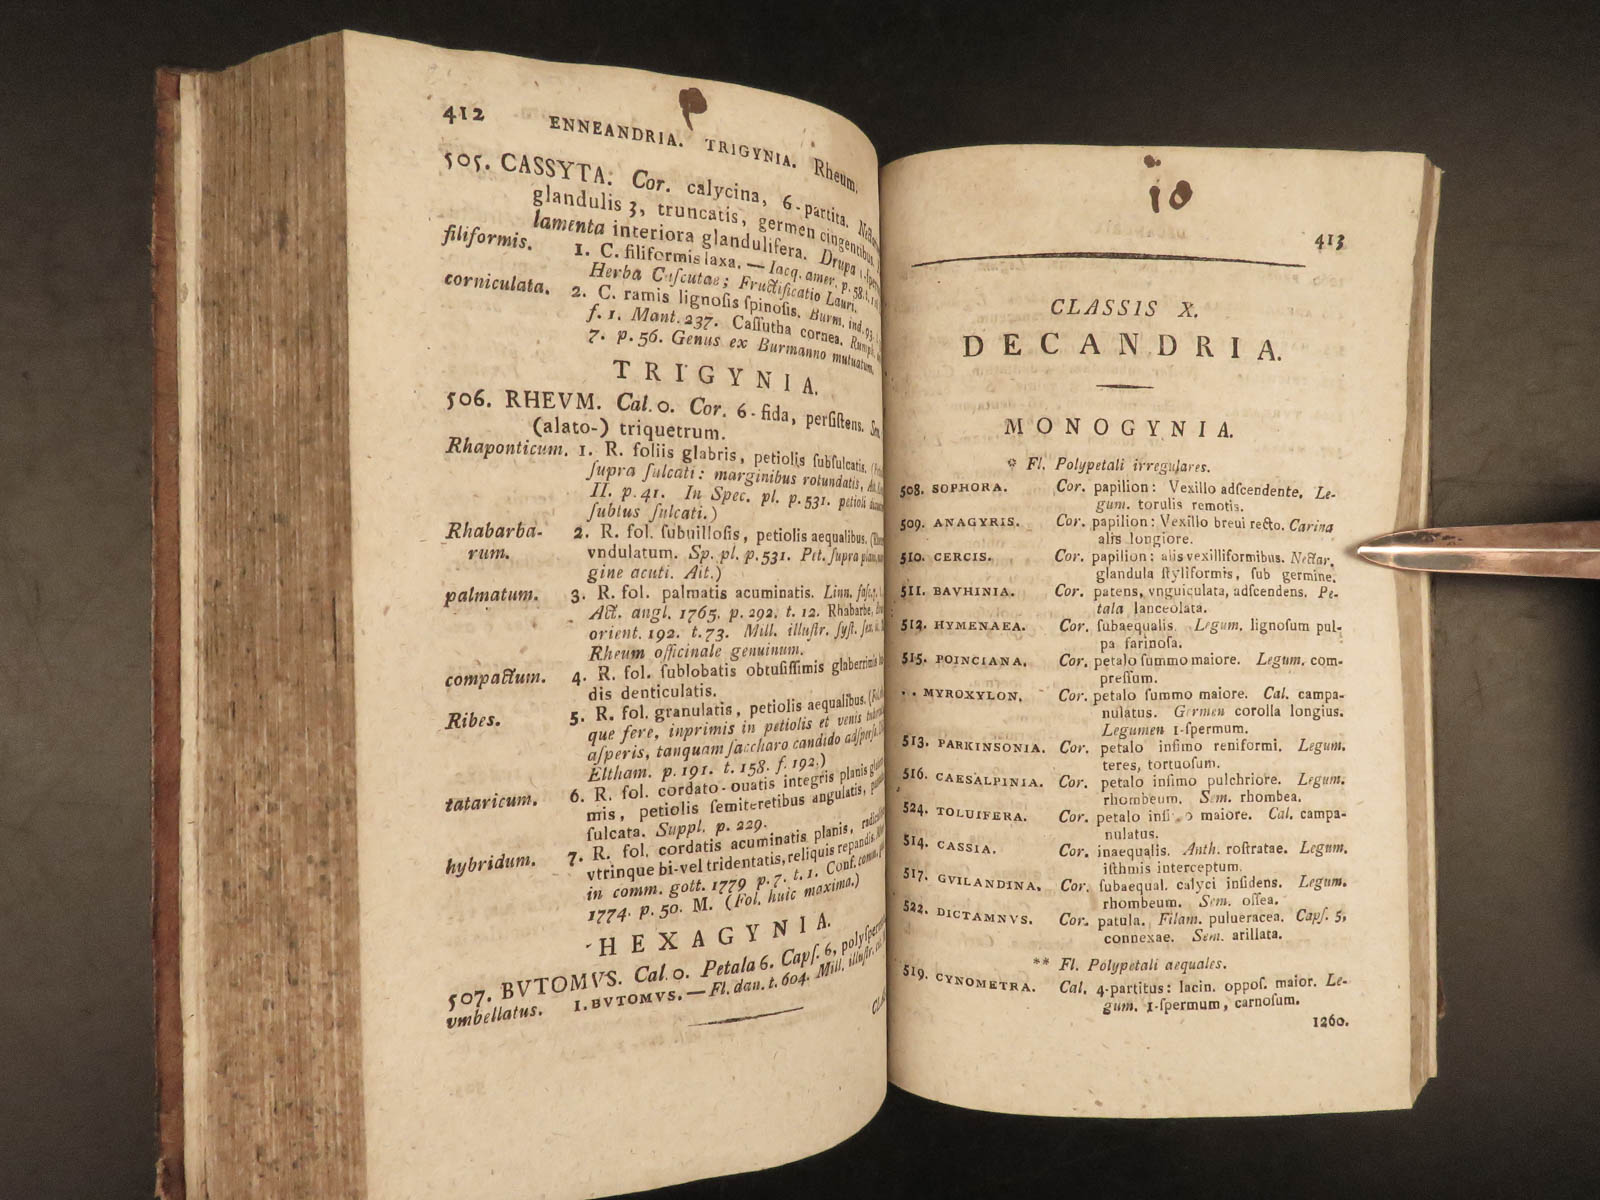 412 ENNEANDRIA. TRIGYNIA. Rheum.
505. CASSYTA. Cor. calycina, 6-partita.
glandulis 3, truncatis, germen cingentibus.
lamenta interiora glandulifera. Drupa 1-sper
filiformis. 1. C. filiformis laxa. — Jacq. amer. p. 58.
Herba Cuſcutae; Fructificatio Lauri.
corniculata. 2. C. ramis lignoſis ſpinoſis. Burm. ind. 93.
f. 1. Mant. 237. Caſſutha cornea. Rumph.
7. p. 56. Genus ex Burmanno mutuatum.
TRIGYNIA.
506. RHEVM. Cal. 0. Cor. 6-fida, perſiſtens. Sem.
(alato-) triquetrum.
Rhaponticum. 1. R. foliis glabris, petiolis ſubſulcatis.
ſupra ſulcati: marginibus rotundatis,
II. p. 41. In Spec. pl. p. 531. petioli
ſubtus ſulcati.)
Rhabarba- 2. R. fol. ſubuilloſis, petiolis aequalibus.
rum. vndulatum. Sp. pl. p. 531. Pet. ſupra plani,
gine acuti. Ait.)
palmatum. 3. R. fol. palmatis acuminatis. Linn. faſc.
Act. angl. 1765. p. 292. t. 12. Rhabarbe,
orient. 192. t. 73. Mill. illuſtr. ſyſt. ſex.
Rheum officinale genuinum.
compactum. 4. R. fol. ſublobatis obtuſiſſimis glaberrimis
dis denticulatis.
Ribes. 5. R. fol. granulatis, petiolis aequalibus.
que fere, inprimis in petiolis et venis
aſperis, tanquam ſaccharo candido adſperſa.
Eltham. p. 191. t. 158. f. 192.)
tataricum. 6. R. fol. cordato-ouatis integris planis
mis, petiolis ſemiteretibus angulatis,
ſulcata. Suppl. p. 229.
hybridum. 7. R. fol. cordatis acuminatis planis,
vtrinque bi-vel tridentatis, reliquis repandis.
in comm. gott. 1779 p. 7. t. 1. Conf. comm.
1774. p. 50. M. (Fol. huic maxima.)
HEXAGYNIA.
507. BVTOMVS. Cal. 0. Petala 6. Capſ. 6, polyſpermae
vmbellatus. 1. BVTOMVS. — Fl. dan. t. 604. Mill. illuſtr.
10
413
CLASSIS X.
DECANDRIA.
MONOGYNIA.
* Fl. Polypetali irregulares.
508. SOPHORA. Cor. papilion: Vexillo adſcendente. Le-
gum. torulis remotis.
509. ANAGYRIS. Cor. papilion: Vexillo breui recto. Carina
alis longiore.
510. CERCIS. Cor. papilion: alis vexilliformibus. Nectar.
glandula ſtyliformis, ſub germine.
511. BAVHINIA. Cor. patens, vnguiculata, adſcendens. Pe-
tala lanceolata.
512. HYMENAEA. Cor. ſubaequalis. Legum. lignoſum pul-
pa farinoſa.
515. POINCIANA. Cor. petalo ſummo maiore. Legum. com-
preſſum.
. . MYROXYLON. Cor. petalo ſummo maiore. Cal. campa-
nulatus. Germen corolla longius.
Legumen 1-ſpermum.
513. PARKINSONIA. Cor. petalo infimo reniformi. Legum.
teres, tortuoſum.
516. CAESALPINIA. Cor. petalo infimo pulchriore. Legum.
rhombeum. Sem. rhombea.
524. TOLUIFERA. Cor. petalo infimo maiore. Cal. campa-
nulatus.
514. CASSIA. Cor. inaequalis. Anth. roſtratae. Legum.
iſthmis interceptum.
517. GVILANDINA. Cor. ſubaequal. calyci inſidens. Legum.
rhombeum. Sem. oſſea.
522. DICTAMNVS. Cor. patula. Filam. puluеracea. Capſ. 5,
connexae. Sem. arillata.
** Fl. Polypetali aequales.
519. CYNOMETRA. Cal. 4-partitus: lacin. oppoſ. maior. Le-
gum. 1-ſpermum, carnoſum.
1260.